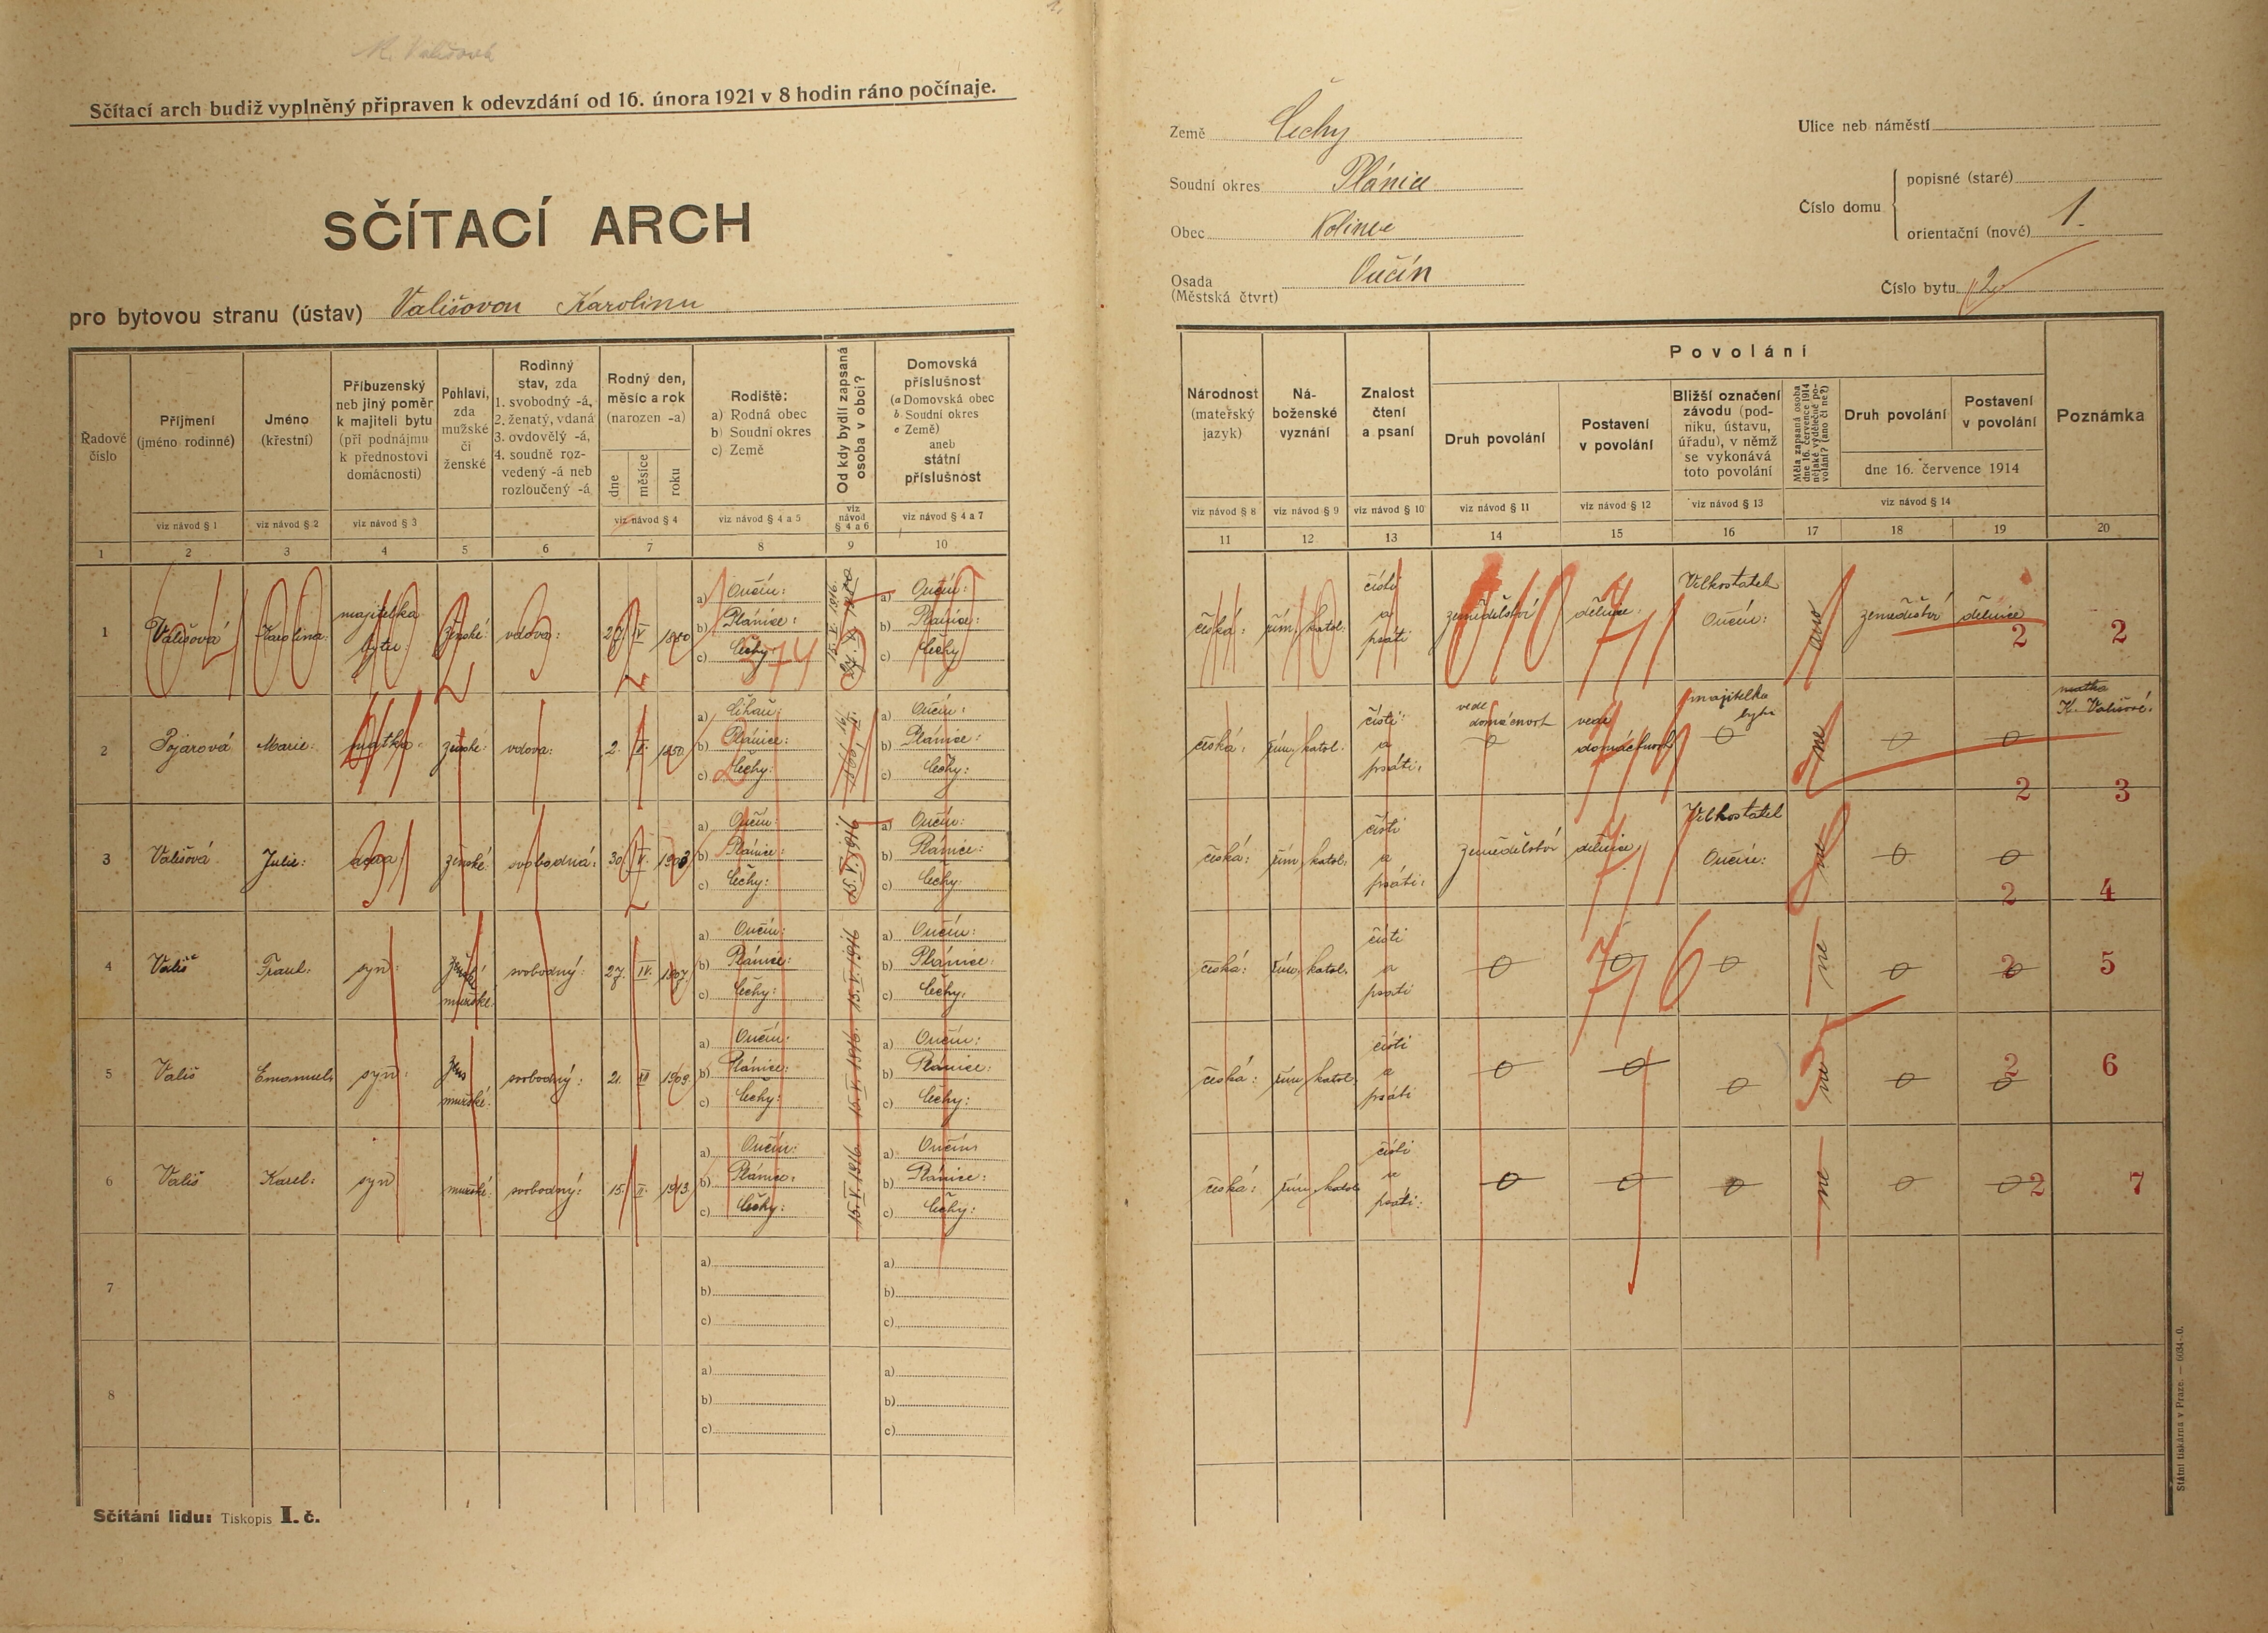 Sčítací arch budiž vyplněný připraven k odevzdání od 16. února 1921 v 8 hodin ráno počínaje.
SČÍTACÍ ARCH
pro bytovou stranu (ústav) Vališovou Karolinu
Země Čechy
Soudní okres Plánice
Obec Kolinec
Osada Oučín
(Městská čtvrt)
Ulice neb náměstí
Číslo domu
popisné (staré)
orientační (nové) 1.
Číslo bytu 2
Řadové číslo
Příjmení (jméno rodinné)
Jméno (křestní)
Příbuzenský neb jiný poměr k majiteli bytu (při podnájmu k přednostovi domácnosti)
Pohlaví, zda mužské či ženské
Rodinný stav, zda 1. svobodný -á, 2. ženatý, vdaná 3. ovdovělý -á, 4. soudně rozvedený -á neb rozloučený -á
Rodný den, měsíc a rok (narozen -a)
dne měsíce roku
Rodiště: a) Rodná obec b) Soudní okres c) Země
Od kdy bydlí zapsaná osoba v obci?
Domovská příslušnost (a Domovská obec b Soudní okres c Země) aneb státní příslušnost
viz návod § 1 viz návod § 2 viz návod § 3 viz návod § 4 viz návod § 4 a 5 viz návod § 4 a 6 viz návod § 4 a 7
1 2 3 4 5 6 7 8 9 10
Národnost (mateřský jazyk)
Náboženské vyznání
Znalost čtení a psaní
Povolání
Druh povolání
Postavení v povolání
Bližší označení závodu (podniku, ústavu, úřadu), v němž se vykonává toto povolání
Měla zapsaná osoba dne 16. července 1914 nějaké výdělečné povolání? (ano či ne?)
Druh povolání
Postavení v povolání
dne 16. července 1914
Poznámka
viz návod § 8 viz návod § 9 viz návod § 10 viz návod § 11 viz návod § 12 viz návod § 13 viz návod § 14
11 12 13 14 15 16 17 18 19 20
1 Vališová Karolina: majitelka bytu: ženské: vdova: 27 IV
a) Oučín: b) Plánice: c) Čechy
a) Oučín: b) Plánice: c) Čechy
česká: řím. katol. čísti a psáti zemědělství dělnice: Velkostatek Oučín: ano zemědělství dělnice 2 2
2 Pojarová Marie: matka: ženské: vdova: 2. 1850
b) Plánice: c) Čechy:
a) Oučín: b) Plánice: c) Čechy:
česká: řím. katol. čísti a psáti: vede domácnost vede domácnost majitelka bytu ne 2 3
matka K. Vališové:
3 Vališová Julie: dcera ženské: svobodná: 30 V. 1903
a) Oučín: b) Plánice: c) Čechy:
15. V. 1916.
a) Oučín: b) Plánice: c) Čechy:
česká: řím. katol: čísti a psáti: zemědělství dělnice Velkostatek Oučín: ne 2 4
4 Vališ syn: mužské: svobodný: 27. IV. 1907.
a) Oučín: b) Plánice: c) Čechy:
15. V. 1916.
a) Oučín: b) Plánice: c) Čechy:
česká: řím. katol. čísti a psáti ne 2 5
5 Vališ Emanuel: syn: mužské: svobodný: 21. XII 1909.
a) Oučín: b) Plánice: c) Čechy:
15. V. 1916.
a) Oučín: b) Plánice: c) Čechy:
česká: řím. katol. čísti a psáti ne 2 6
6 Vališ Karel: syn mužské: svobodný: 15. II. 1913.
a) Oučín: b) Plánice: c) Čechy:
15. V. 1916.
a) Oučín: b) Plánice: c) Čechy:
česká: řím. katol. čísti a psáti: ne 2 7
7 a) b) c) a) b) c)
8 a) b) c) a) b) c)
Sčítání lidu: Tiskopis I. č.
Státní tiskárna v Praze. — 6034-0.